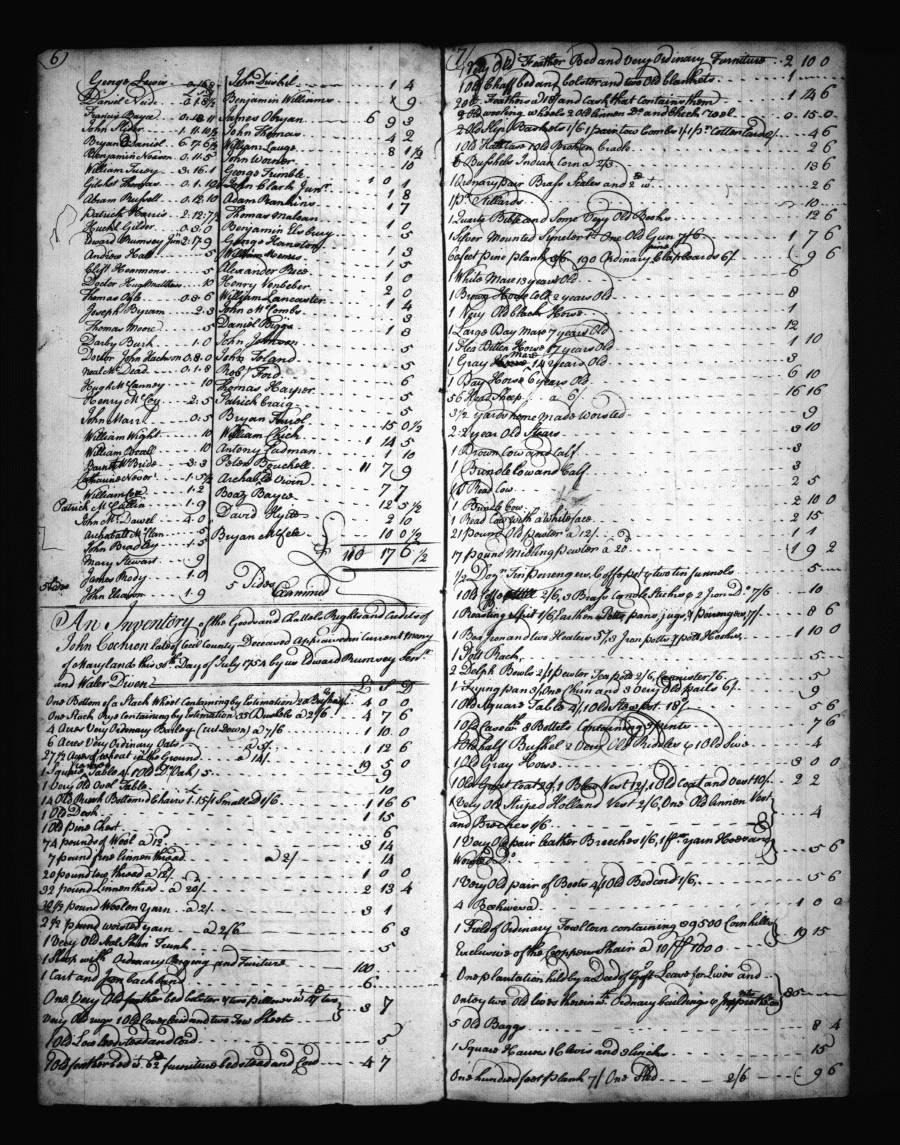 6
George Lewis
Daniel Neide 0.1.8½
Francis Boyce 0.18.11
John Rider 1.11.10½
Bryan Daniel 6.7.6½
Benjamin Noxson 0.11.5
William Furey 3.16.1
Gilchst Thomas 0.1.10
Abram Russell 0.12.10
Patrick Harris 2.12.7½
Huckl Gilder 0.3.0
Edward Rumsey Junr 2.17.9
Andrew Hall 5
Clift Hemmons 5
Doctor Hugh Matthews 10
Thomas Ogle 0.8.6
Joseph Byram 2.3
Thomas Moore 5
Darby Burk 1.0
Doctor John Hackson 0.8.0
Neal McDead 0.1.8
Hugh McCanney 10
Henry McCoy 2.5
John Marr 0.5
William Wight 10
William Beall 10
Barnett McBride 3.3
William Cox 1.2
Patrick McCallin 1.9
John McDawel 4.0
Archabatt McElan 5
John Bradley 1.5
Mary Stewart 9
James Rody 1.0
John Eleason 1.9
John Lushel 1 4
Benjamin Williams 9
James Ohryan 6 9 3
John Thomas 4 2
William Lauge 8 1½
John Wornor 10
George Trimble
John Clark Junr 1 0 1
Adam Rankins 1 8
Thomas Malean 1 7
Benjamin Elsbury
George Hanston 5
William Weems 1 3
Alexander Bice 1 5
Henry Venbeber 1 0
William Lancaster 2 0
John McCombs 1 4
Daniel Biggs 3
John Johnson 1 8
John Toland 5
Robt Ford 5
Thomas Harper 6
Patrick Craig 5
Bryan Ferrol 5
William Chick 15 0½
Antony Cadman 1 14 5
Peter Bouchell 1 10
Archable Orwin 11 7 9
Boaz Boyce 7 7
David Ryce 12 5½
2 10
Bryan McFee 10 0½
£ 110 17 6½
5 Sides
5 Sides Examined
An Inventory of the Goods and Chattels Rights and Credits of
John Cochron late of Cecil County Deceased Appraised in Current money
of Maryland this 30th Day of July 1754 by us Edward Rumsey Senr
and Water Divon £ S D
One Bottom of a Stack Wheet Containing by Estimation 20 Bushails 4 0 0
One Stack Rye Containing by Estimation 35 Bushels a 2/6 4 7 6
4 Acres Very Ordinary Barley (cut Down) a 7/6 1 10 0
6 Acres Very Ordinary Oats a 3/9 1 12 6
27½ Acres of wheat in the Ground a 14/. 19 5 0
1 Square Table 4/. 1 Old Do Oak) 5 9
1 Very Old Ovel Table 10
14 Old Rush Bottomed Chairs 1.15/. 1 Small Do 1/6 1 16 6
1 Old Desk 1 15
1 Old Pine Chest 6
74 pounds of Wool a 12 3 14
7 pound fine linnen thread a 2/ 14
20 pound tow thread a 12/. 1 0 0
32 pound Linnen thred a 20/. 2 13 4
30½ pound Woolen Yarn a 2/. 3 1
2½ pound worsted yarn a 2/6 6 3
1 Very Old Seal Skin Trunk 5
1 Sloop with Ordinary Rigging and Furiture 100
1 Cart and Iron Back band 6
One Very Old feather bed bolster & two pillows wt 47 two
Very Old rugs 1 Old Coverleed and two Tow Sheets } 3 7
1 Old Low bedstead and Cord 5
1 Old feather bed wt 62 furniture bedstead and Cord 4 7
7
1 Very Old Feather Bed and Very Ordinary Furniture 2 10 0
1 Old Chaff bed and bolster and two Old blankets 1
20 lb Feathers a 18d and cask that contains them 1 14 6
2 Old woolling wheels 2 Old linnen Do and Check reel 0 15 0
2 Old Slip Baskets 1/6 1 pair tow Combs 1/ 1 pr Cotton Cards 4 6
1 Old Hatt Case 1 Old Broken Cradle 2 6
6 Bushels Indian Corn a 2/3 13 6
1 Ordinary pair Brass Scales and 2 lb wt 2 6
1 pr Stillards 10
1 Quarto Bible and Some Very Old Books 12 6
1 Silver Mounted Symeter &c One Old Gun 7/6 1 7 6
60 feet Pine plank 3/6 190 Ordinary pine Clapboards 6/. 9 6
White Mare 13 years Old 6
1 Brown Horse Colt 2 years Old 8
1 Very Old black Horse 1
1 Large Bay Mare 7 years Old 12
1 Flea Bitten Horse 17 years Old 1 10
1 Gray Mare 14 years Old 3
1 Bay Horse 6 years Old 6 10
56 Head Sheep a 6/. 16 16
3½ yards home made Worsted 9
2 2 year Old Stears 3 10
1 Brown Cow and Calf 3
1 Brundle Cow and Calf 3
1 Read Cow 2 5
1 Brindle Cow 2 10 0
1 Read Cow with a white face 2 15
21 pound Old pewter a 12/. 1 1
17 pound Midling pewter a 20 1 9 2
½ Dozn Tin porrengers, Coffopot & two tin funnels 5
1 Old 2/6, 3 Brass Candle Sticks & 2 Iron Do 7/6 10
1 Roasting Spit 1/6 Earthen Potts pans, jugs, & porrengers 7/. 8 6
1 Box Iron and two Heaters 5/. 3 Iron potts, 2 pott Hooks 1 10 0
1 Pott Rack 5
2 Dolph Bowls 2/1 pewter Tea pott 2/6, Cannister /6 5
1 Frying pan 3/. One Churn and 3 Very Old pails 6/. 9
1 Old Square Table 4/. 1 Old Stew pot 18d/. 5 6
1 Old Case wth 8 Bottels Containing 3 pints 7 6
1 Old half Bushel 2 Very Old Riddles & 1 Old Sive 4
1 Old Gray Horse 3 0 0
1 Old Great Coat 20/. 1 Blew Vest 12/. 1 Old Coat and Vest 10/. 2 2
1 Very Old Striped Holland Vest 2/6, One Old linnen Vest
and Breches 1/6 } 4
1 Very Old pair leather Breeches 1/6, 1 ffine yarn Hose and
Worsted Do } 5 6
1 Very Old pair of Boots 4/. 1 Old Bed cord 1/6 5 6
4 Beehives a 1 0 0
1 Field of Ordinary containing 39500 Corn hills
Exclusive of the Croppers Shair a 10/ff 1000 } 19 15
One plantation held by a Deed of Gift Leave for Lives and
On Old lives therein wt Ordnary buildings & } 80
5 Old Baggs 8 4
1 Square Hause 16 15
One hundred feet plank 7/. One Sled 2/6 9 6